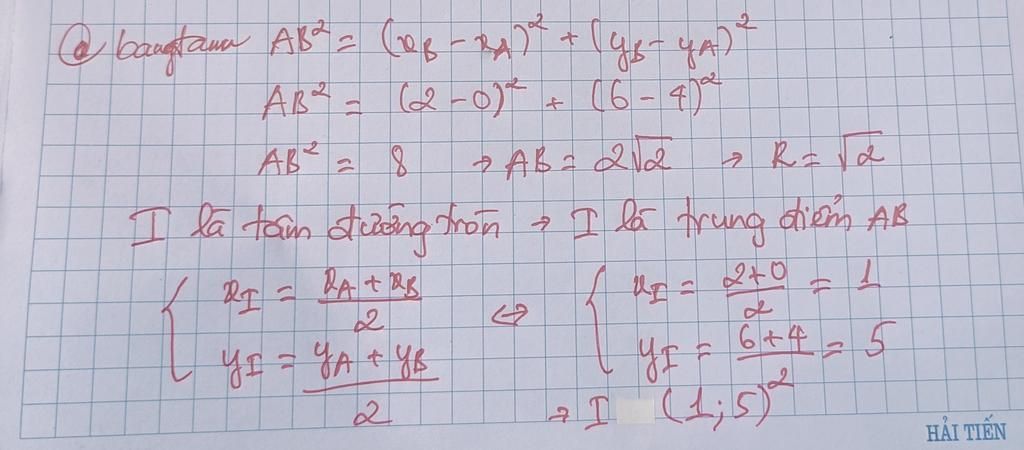 @ bangtam AB² = (x_B - x_A)² + (y_B - y_A)²
AB² = (2 - 0)² + (6 - 4)²
AB² = 8 → AB = 2√2 → R = √2
I là tâm đường tròn → I là trung điểm AB
{ x_I = (x_A + x_B)/2 ⇔ { x_I = (2+0)/2 = 1
y_I = (y_A + y_B)/2 y_I = (6+4)/2 = 5
→ I (1;5)²
HẢI TIẾN